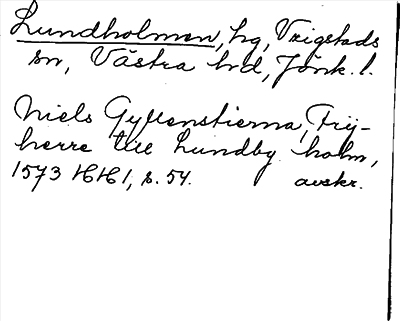 Lundholmen, hg, Vrigstads
sn, Västra hd, Jönk. l.
Niels Gyllenstierna, Frij-
herre till Lundby holm,
1573 HH 1, s. 54. avskr.